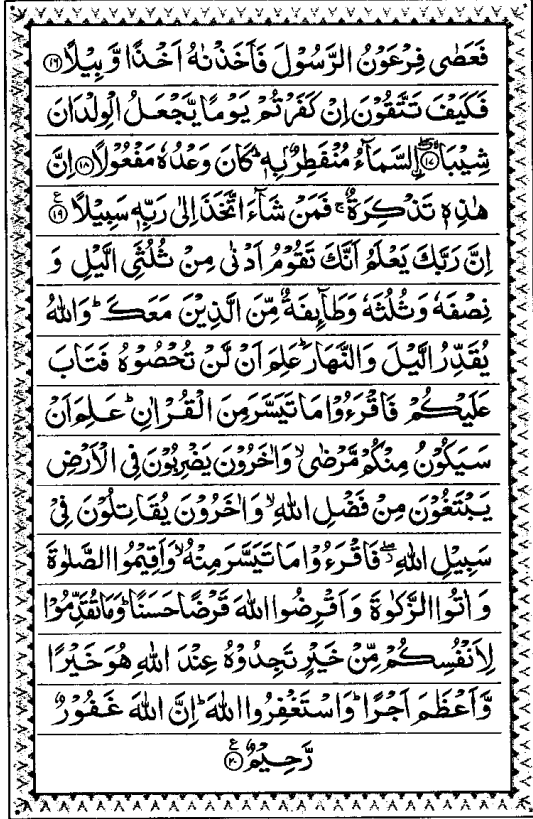 فَعَصٰى فِرْعَوْنُ الرَّسُوْلَ فَاَخَذْنٰهُ اَخْذًا وَّبِيْلًا ۝۱۶
فَكَيْفَ تَتَّقُوْنَ اِنْ كَفَرْتُمْ يَوْمًا يَّجْعَلُ الْوِلْدَانَ
شِيْبَا ۝۱۷ اِۨلسَّمَآءُ مُنْفَطِرٌۢ بِهٖ ؕ كَانَ وَعْدُهٗ مَفْعُوْلًا ۝۱۸ اِنَّ
هٰذِهٖ تَذْكِرَةٌ ۚ فَمَنْ شَآءَ اتَّخَذَ اِلٰى رَبِّهٖ سَبِيْلًا ۝۱۹ ع
اِنَّ رَبَّكَ يَعْلَمُ اَنَّكَ تَقُوْمُ اَدْنٰى مِنْ ثُلُثَيِ الَّيْلِ وَ
نِصْفَهٗ وَثُلُثَهٗ وَطَآئِفَةٌ مِّنَ الَّذِيْنَ مَعَكَ ؕ وَاللّٰهُ
يُقَدِّرُ الَّيْلَ وَالنَّهَارَ ؕ عَلِمَ اَنْ لَّنْ تُحْصُوْهُ فَتَابَ
عَلَيْكُمْ فَاقْرَءُوْا مَا تَيَسَّرَ مِنَ الْقُرْاٰنِ ؕ عَلِمَ اَنْ
سَيَكُوْنُ مِنْكُمْ مَّرْضٰى ۙ وَاٰخَرُوْنَ يَضْرِبُوْنَ فِى الْاَرْضِ
يَبْتَغُوْنَ مِنْ فَضْلِ اللّٰهِ ۙ وَاٰخَرُوْنَ يُقَاتِلُوْنَ فِيْ
سَبِيْلِ اللّٰهِ ۖ فَاقْرَءُوْا مَا تَيَسَّرَ مِنْهُ ۙ وَاَقِيْمُوا الصَّلٰوةَ
وَاٰتُوا الزَّكٰوةَ وَاَقْرِضُوا اللّٰهَ قَرْضًا حَسَنًا ؕ وَمَا تُقَدِّمُوْا
لِاَنْفُسِكُمْ مِّنْ خَيْرٍ تَجِدُوْهُ عِنْدَ اللّٰهِ هُوَ خَيْرًا
وَّاَعْظَمَ اَجْرًا ؕ وَاسْتَغْفِرُوا اللّٰهَ ؕ اِنَّ اللّٰهَ غَفُوْرٌ
رَّحِيْمٌ ۝۲۰ ع